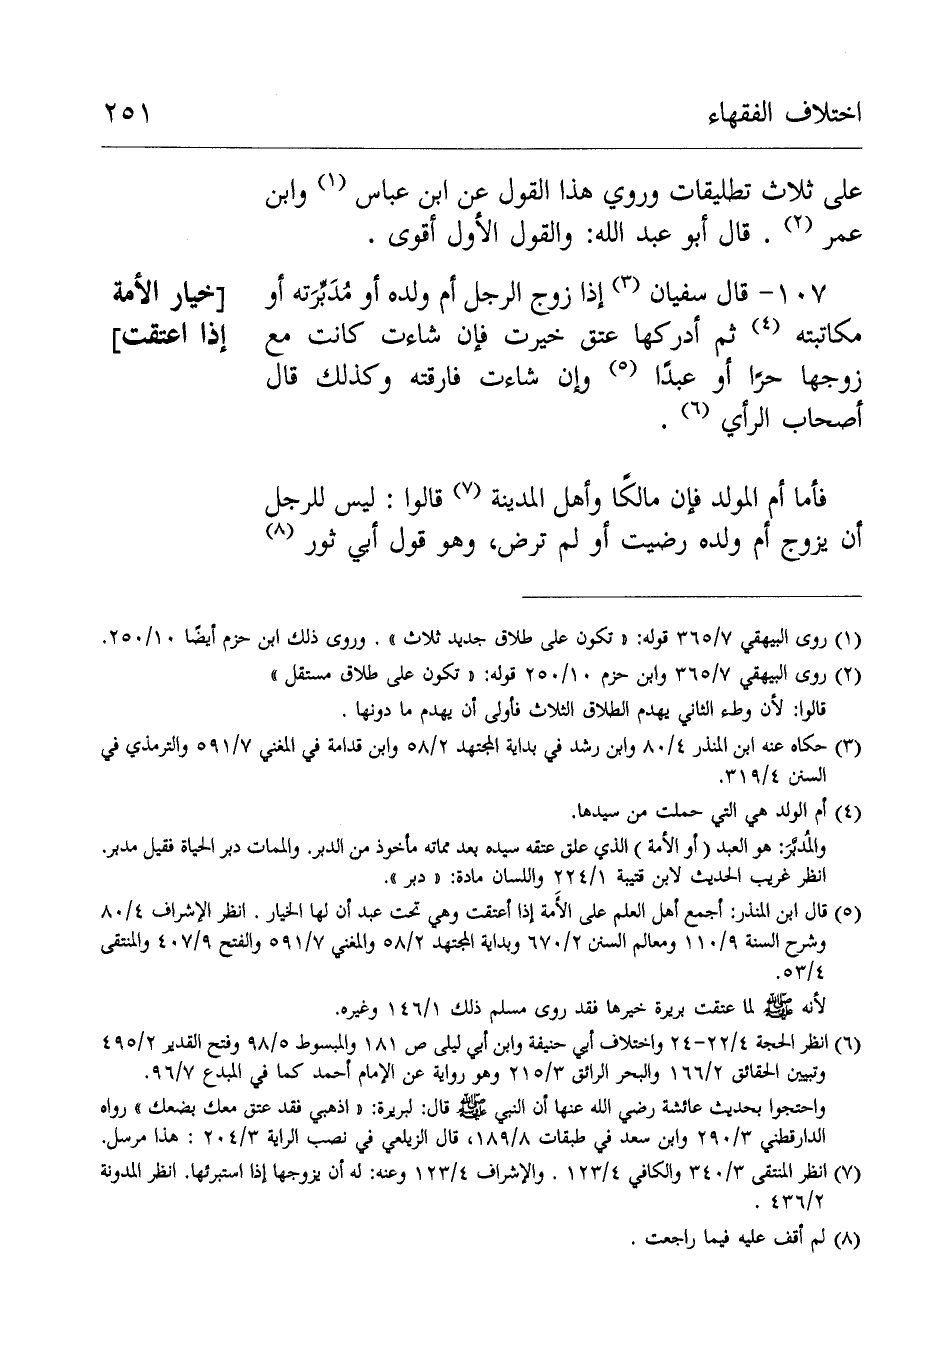 اختلاف الفقهاء ٢٥١
على ثلاث تطليقات وروي هذا القول عن ابن عباس (١) وابن
عمر (٢) . قال أبو عبد الله: والقول الأول أقوى .
١٠٧- قال سفيان (٣) إذا زوج الرجل أم ولده أو مُدَبَّرَته أو
[خيار الأمة
مكاتبته (٤) ثم أدركها عتق خيرت فإن شاءت كانت مع
إذا اعتقت]
زوجها حرًا أو عبدًا (٥) وإن شاءت فارقته وكذلك قال
أصحاب الرأي (٦) .
فأما أم المولد فإن مالكًا وأهل المدينة (٧) قالوا : ليس للرجل
أن يزوج أم ولده رضيت أو لم ترض، وهو قول أبي ثور (٨)
(١) روى البيهقي ٣٦٥/٧ قوله: « تكون على طلاق جديد ثلاث » . وروى ذلك ابن حزم أيضًا ٢٥٠/١٠.
(٢) روى البيهقي ٣٦٥/٧ وابن حزم ٢٥٠/١٠ قوله: « تكون على طلاق مستقل »
قالوا: لأن وطء الثاني يهدم الطلاق الثلاث فأولى أن يهدم ما دونها .
(٣) حكاه عنه ابن المنذر ٨٠/٤ وابن رشد في بداية المجتهد ٥٨/٢ وابن قدامة في المغني ٥٩١/٧ والترمذي في
السنن ٣١٩/٤.
(٤) أم الولد هي التي حملت من سيدها.
والمُدبَّر: هو العبد ( أو الأمة ) الذي علق عتقه سيده بعد مماته مأخوذ من الدبر. والممات دبر الحياة فقيل مدبر.
انظر غريب الحديث لابن قتيبة ٢٢٤/١ واللسان مادة: « دبر ».
(٥) قال ابن المنذر: أجمع أهل العلم على الأَمة إذا أعتقت وهي تحت عبد أن لها الخيار . انظر الإشراف ٨٠/٤
وشرح السنة ١١٠/٩ ومعالم السنن ٦٧٠/٢ وبداية المجتهد ٥٨/٢ والمغني ٥٩١/٧ والفتح ٤٠٧/٩ والمنتقى
٥٣/٤.
لأنه ﷺ لما عتقت بريرة خيرها فقد روى مسلم ذلك ١٤٦/١ وغيره.
(٦) انظر الحجة ٢٢/٤-٢٤ واختلاف أبي حنيفة وابن أبي ليلى ص ١٨١ والمبسوط ٩٨/٥ وفتح القدير ٤٩٥/٢
وتبيين الحقائق ١٦٦/٢ والبحر الرائق ٢١٥/٣ وهو رواية عن الإمام أحمد كما في المبدع ٩٦/٧.
واحتجوا بحديث عائشة رضي الله عنها أن النبي ﷺ قال: لبريرة: « اذهبي فقد عتق معك بضعك » رواه
الدارقطني ٢٩٠/٣ وابن سعد في طبقات ١٨٩/٨، قال الزيلعي في نصب الراية ٢٠٤/٣ : هذا مرسل.
(٧) انظر المنتقى ٣٤٠/٣ والكافي ١٢٣/٤ . والإشراف ١٢٣/٤ وعنه: له أن يزوجها إذا استبرئها. انظر المدونة
٤٣٦/٢ .
(٨) لم أقف عليه فيما راجعت .